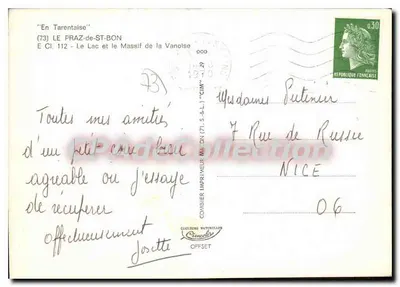 "En Tarentaise"
(73) LE PRAZ-de-ST-BON
E Cl. 112 - Le Lac et le Massif de la Vanoise
73)
Toutes mes amitiés
d'un petit coin bien
agréable où j'essaye
de récupérer
affectueusement
Josette
COMBIER IMPRIMEUR MACON (71, S.-&-L.) "CIM"
COULEURS NATURELLES
Combier
OFFSET
0,30
REPUBLIQUE FRANÇAISE
Mesdames
7 Rue de Russie
NICE
06